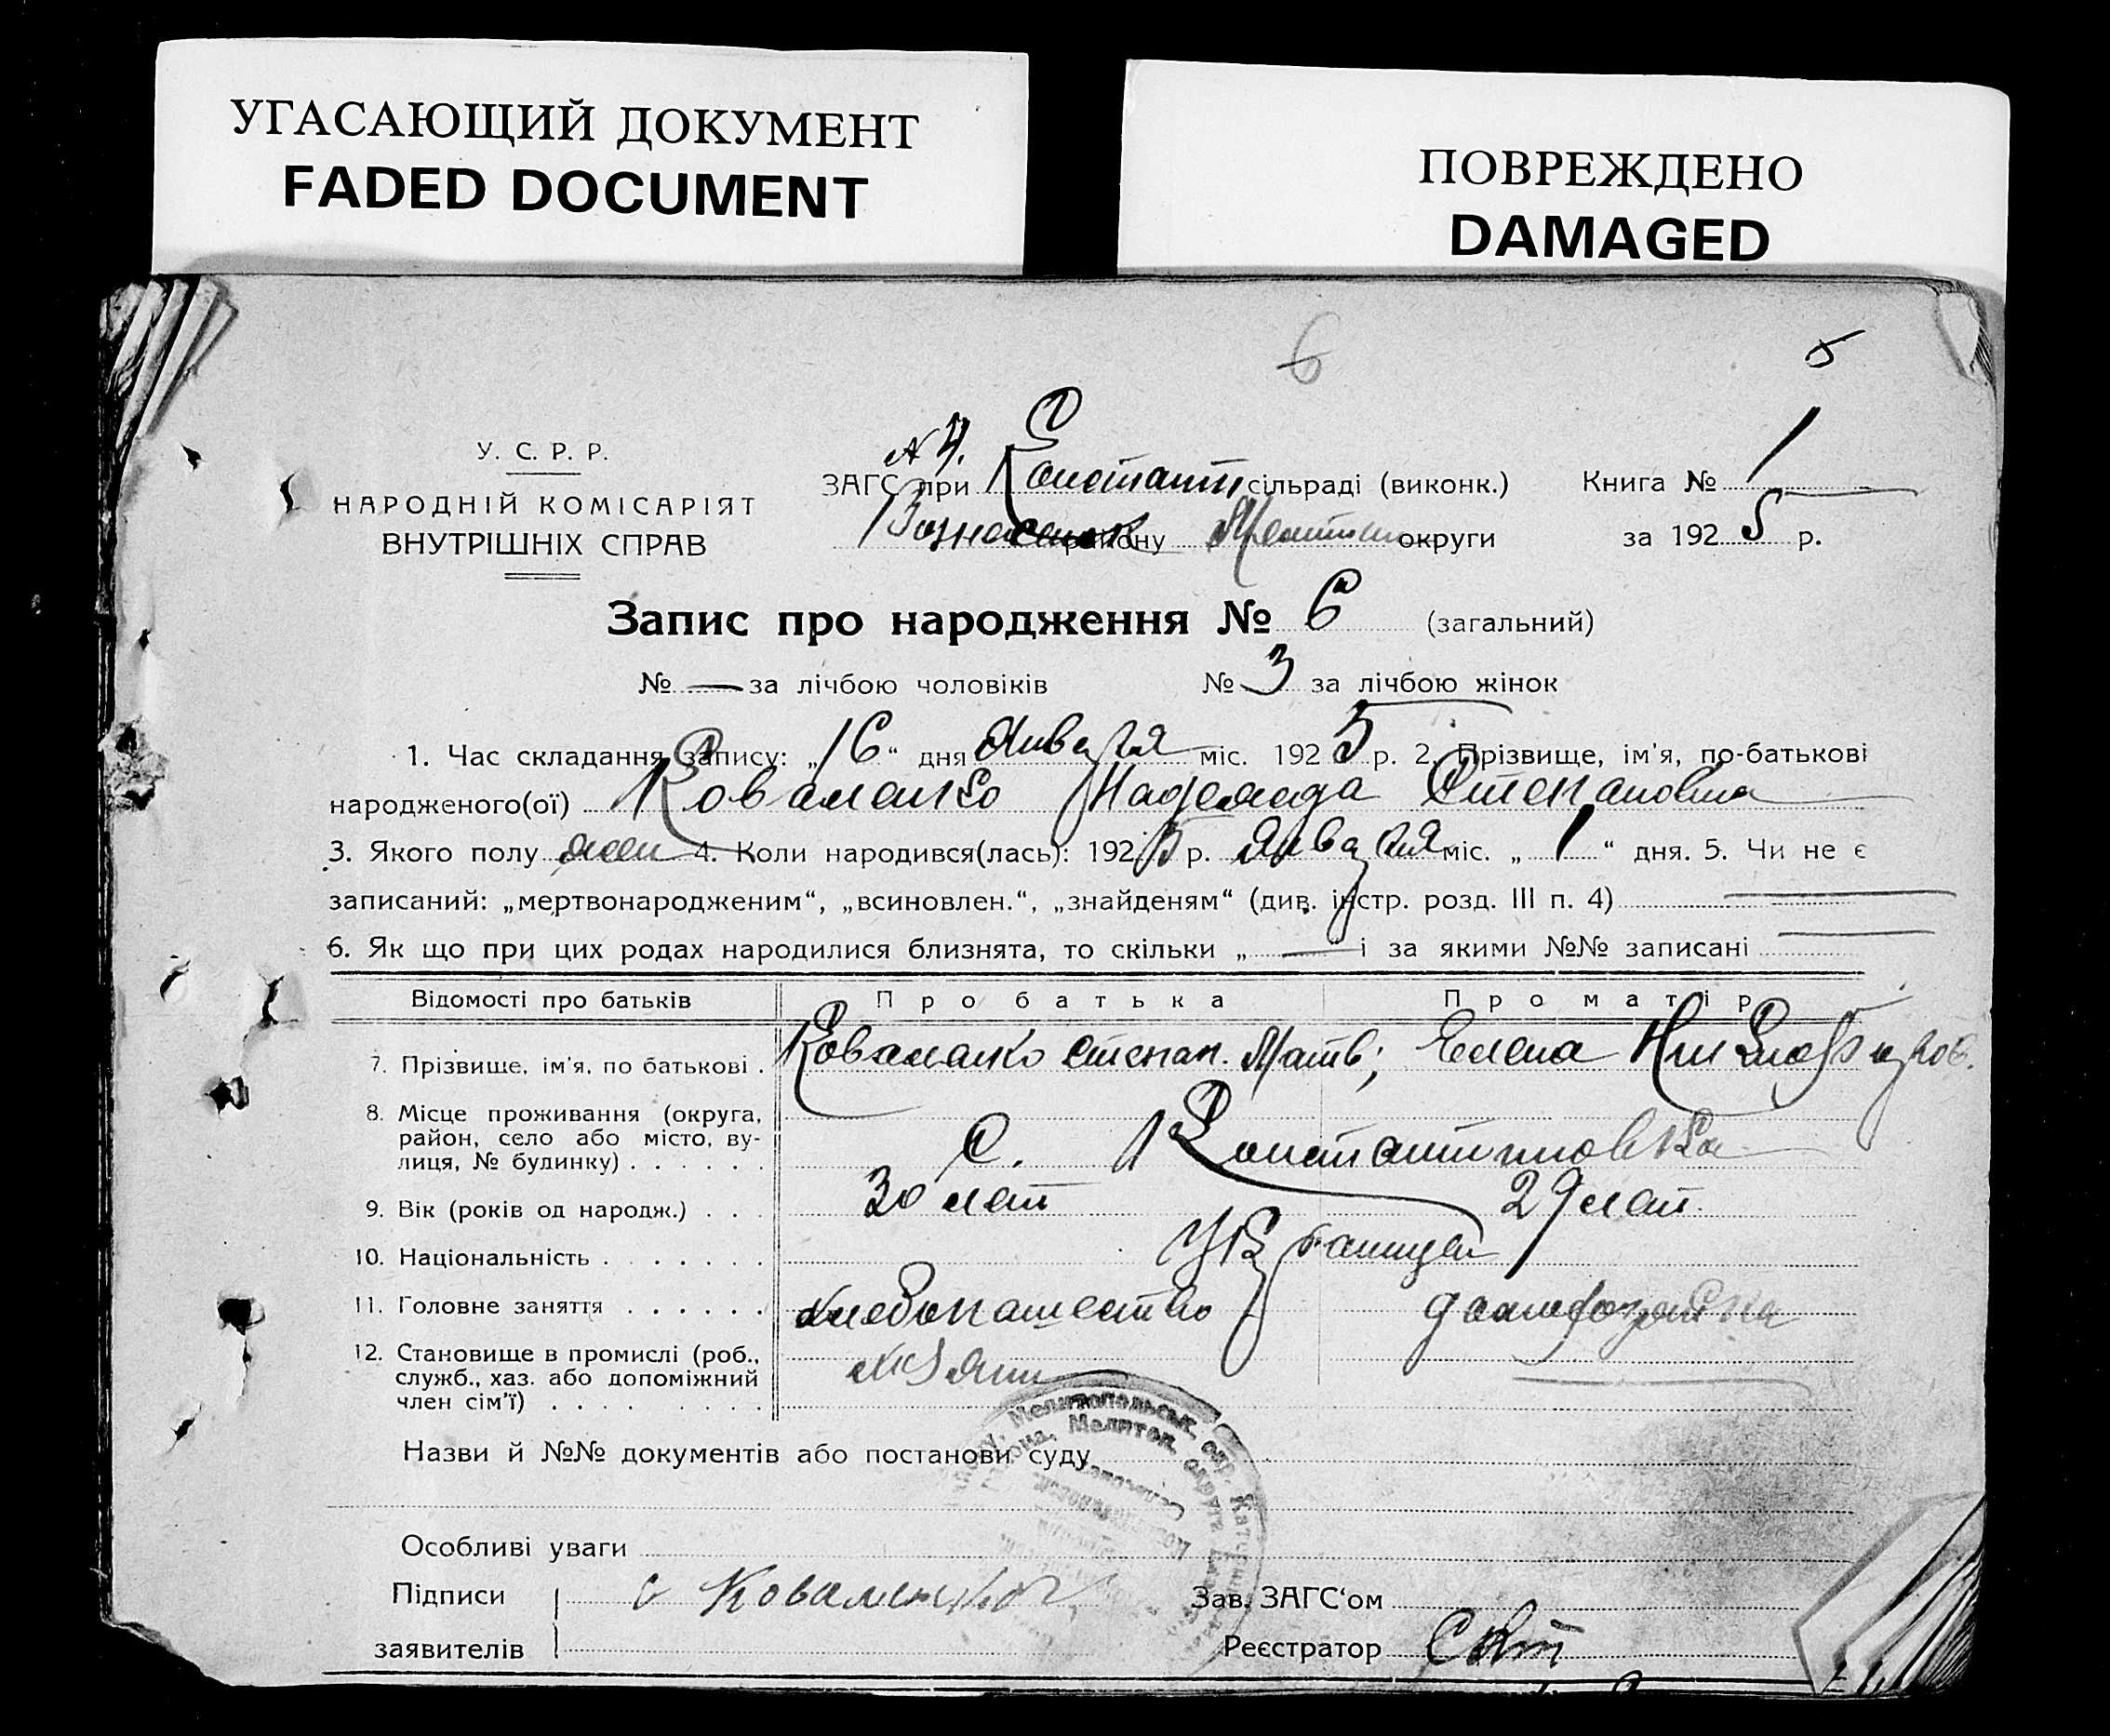 УГАСАЮЩИЙ ДОКУМЕНТ
FADED DOCUMENT
ПОВРЕЖДЕНО
DAMAGED
6
5
У. С. Р. Р.
НАРОДНІЙ КОМІСАРІЯТ
ВНУТРІШНІХ СПРАВ
ЗАГС при Константин сільраді (виконк.)
району округи
Книга № 1
за 1925 р.
Запис про народження № 6 (загальний)
№ — за лічбою чоловіків № 3 за лічбою жінок
1. Час складання запису: „16“ дня Января міс. 1925 р. 2. Прізвище, ім'я, по-батькові
народженого(ої) Коваленко Надежда Степановна
3. Якого полу жен 4. Коли народився(лась): 1925 р. Января міс. „1“ дня. 5. Чи не є
записаний: „мертвонародженим“, „всиновлен.“, „знайденям“ (див. інстр. розд. III п. 4) —
6. Як що при цих родах народилися близнята, то скільки „ — і за якими №№ записані —
Відомості про батьків Про батька Про матір
7. Прізвище, ім'я, по батькові . Коваленко Степан. Матв; Елена
8. Місце проживання (округа,
район, село або місто, ву-
лиця, № будинку) . . . . . . с. Константиновка
9. Вік (років од народж.) . . . 30 лет 29 лет.
10. Національність . . . . . . . Украинцы
11. Головне заняття . . . . . . Хлебопашество домохозяйка
12. Становище в промислі (роб.,
служб., хаз. або допоміжний
член сім'ї) . . . . . . . .
Мелитопольськ. окр. Катерин
Мелитоп. округи
Назви й №№ документів або постанови суду
Особливі уваги
Підписи
заявителів
с Коваленко
Зав. ЗАГС'ом
Реєстратор